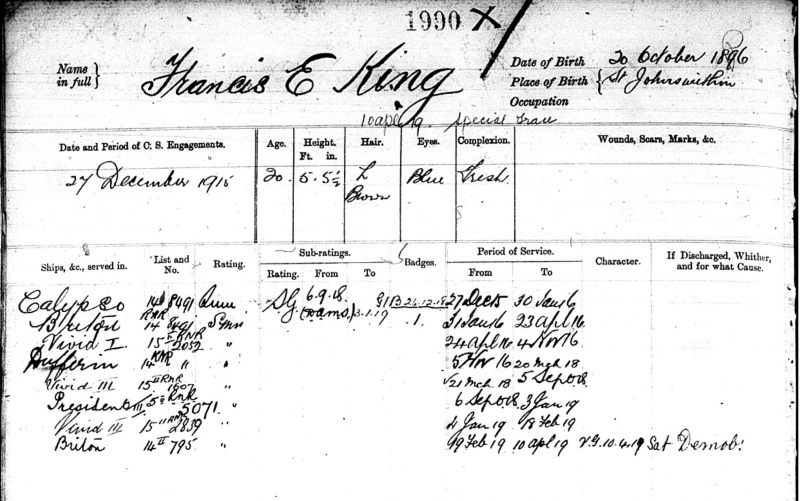 1990 X
Name in full } Francis E King
Date of Birth 20 October 1896
Place of Birth { St Johns
Occupation
10 apl 19. Special
Date and Period of C. S. Engagements. Age. Height. Ft. in. Hair. Eyes. Complexion. Wounds, Scars, Marks, &c.
27 December 1915 20. 5. 5½ L Brown Blue Fresh
Ships, &c., served in. List and No. Rating. Sub-ratings. Rating. From To Badges. Period of Service. From To Character. If Discharged, Whither, and for what Cause.
Calypso 8491 SG 6.9.18. 27 Dec 15 30 Jan 16
Briton 14 8491 Smn (Dams) 3.1.19 .1. 31 Jan 16 23 apl 16
Vivid I 15 RNR 2052 " 24 apl 16 4 Nov 16
Dufferin 14 RNR " " 5 Nov 16 20 mch 18
Vivid III 15 II RNR 1607 " 21 mch 18 5 Sept 18
President III RNR 5071. " 6 Sept 18 3 Jan 19
Vivid III 15 II RNR 2859 " 4 Jan 19 18 Feb 19
Briton 14 II 795 " 19 Feb 19 10 apl 19 V.G. 10.4.19 Sat Demob: